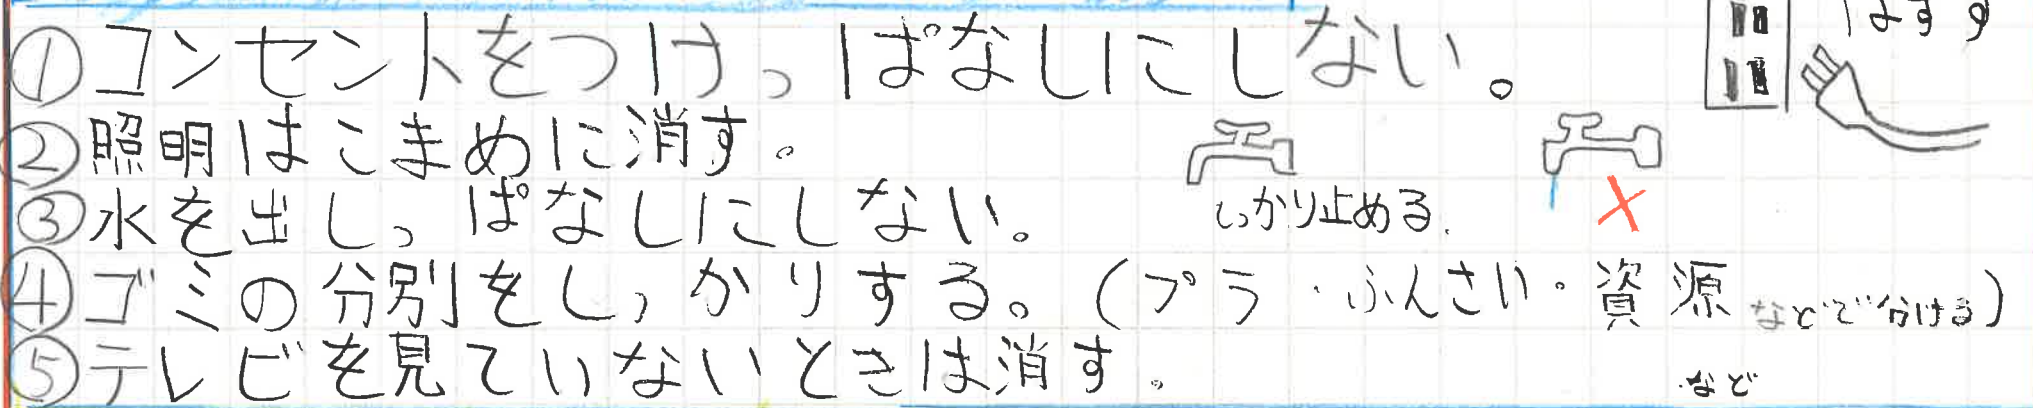 はずす
①コンセントをつけっぱなしにしない。
②照明はこまめに消す。
③水を出しっぱなしにしない。
しっかり止める.
④ゴミの分別をしっかりする。(プラ・ふんさい・資源などで分ける)
⑤テレビを見ていないときは消す。
など